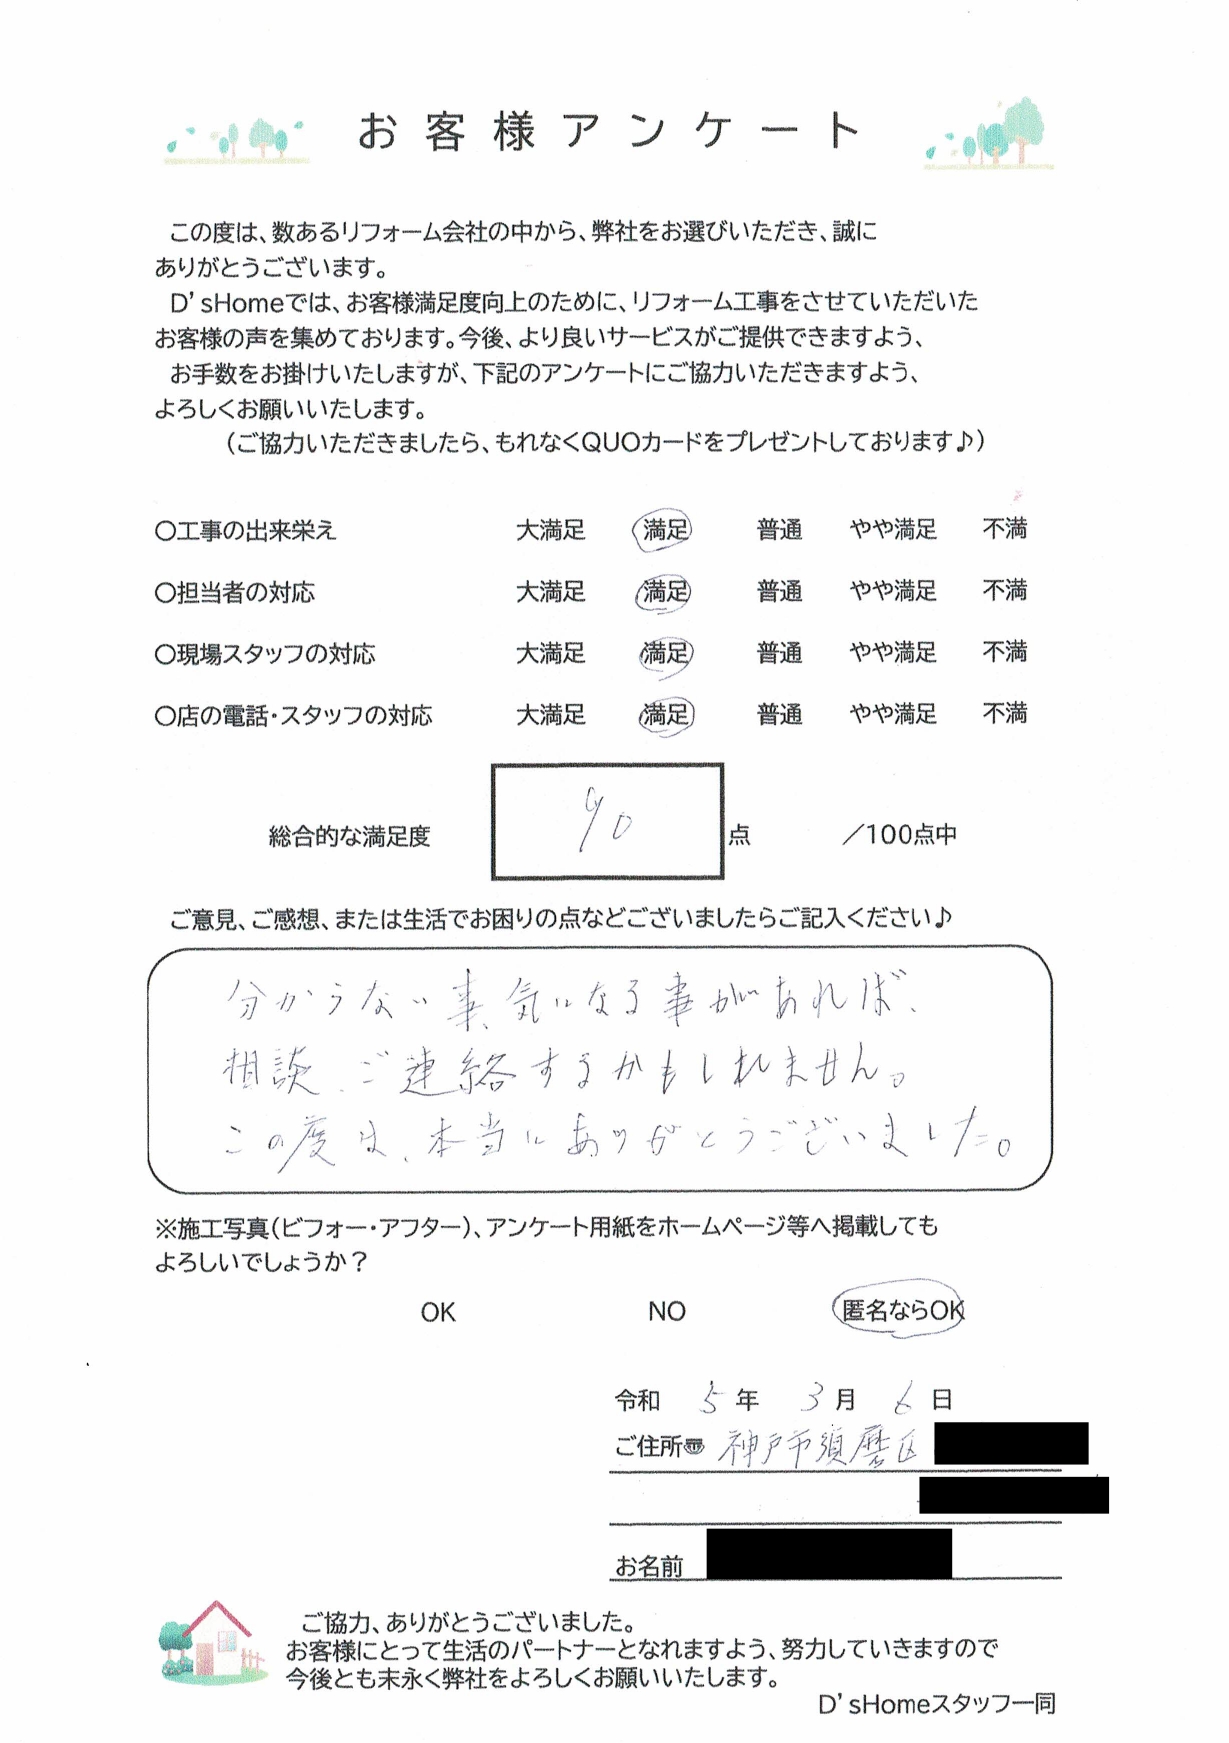 お客様アンケート
この度は、数あるリフォーム会社の中から、弊社をお選びいただき、誠に
ありがとうございます。
D'sHomeでは、お客様満足度向上のために、リフォーム工事をさせていただいた
お客様の声を集めております。今後、より良いサービスがご提供できますよう、
お手数をお掛けいたしますが、下記のアンケートにご協力いただきますよう、
よろしくお願いいたします。
（ご協力いただきましたら、もれなくQUOカードをプレゼントしております♪）
〇工事の出来栄え 大満足 満足 普通 やや満足 不満
〇担当者の対応 大満足 満足 普通 やや満足 不満
〇現場スタッフの対応 大満足 満足 普通 やや満足 不満
〇店の電話・スタッフの対応 大満足 満足 普通 やや満足 不満
総合的な満足度 90 点 ／100点中
ご意見、ご感想、または生活でお困りの点などございましたらご記入ください♪
分からない事、気になる事があれば、
相談、ご連絡するかもしれません。
この度は、本当にありがとうございました。
※施工写真（ビフォー・アフター）、アンケート用紙をホームページ等へ掲載しても
よろしいでしょうか？
OK NO 匿名ならOK
令和 5 年 3 月 6 日
ご住所〠 神戸市須磨区
お名前
ご協力、ありがとうございました。
お客様にとって生活のパートナーとなれますよう、努力していきますので
今後とも末永く弊社をよろしくお願いいたします。
D'sHomeスタッフ一同